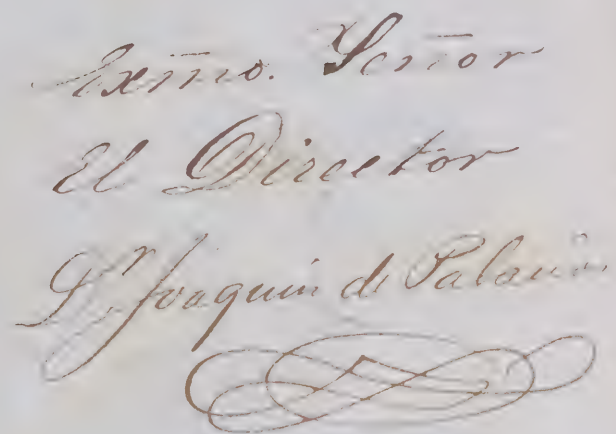 Exmo. Señor
El Director
Dr. Joaquin de Palacio